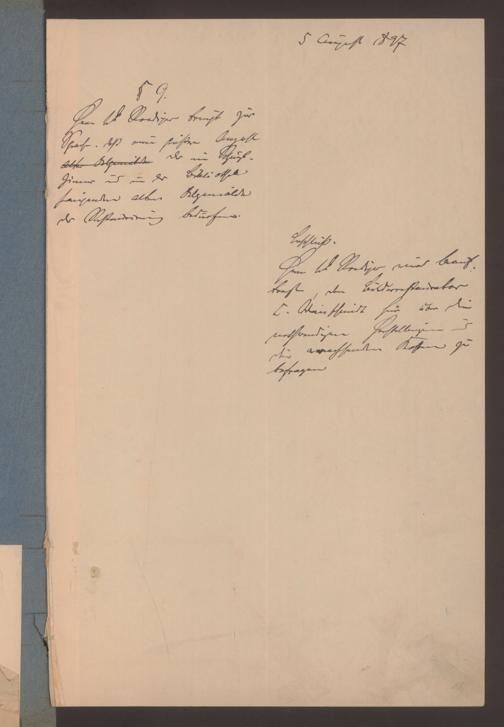 5 August 1897
§ 9.
Herr Dr Roediger bringt zur
Sprache, daß eine größere Anzahl
alter Oelgemälde der im
Zimer und in der Bibliothek
hängenden alten Oelgemälde
der Restaurierung bedürfen.
Beschluß.
Herr Dr Roediger wird beauf-
tragt, den Bilderrestaurator
hier über die
nothwendigen Herstellungen u
die erwachsenden Kosten zu
befragen